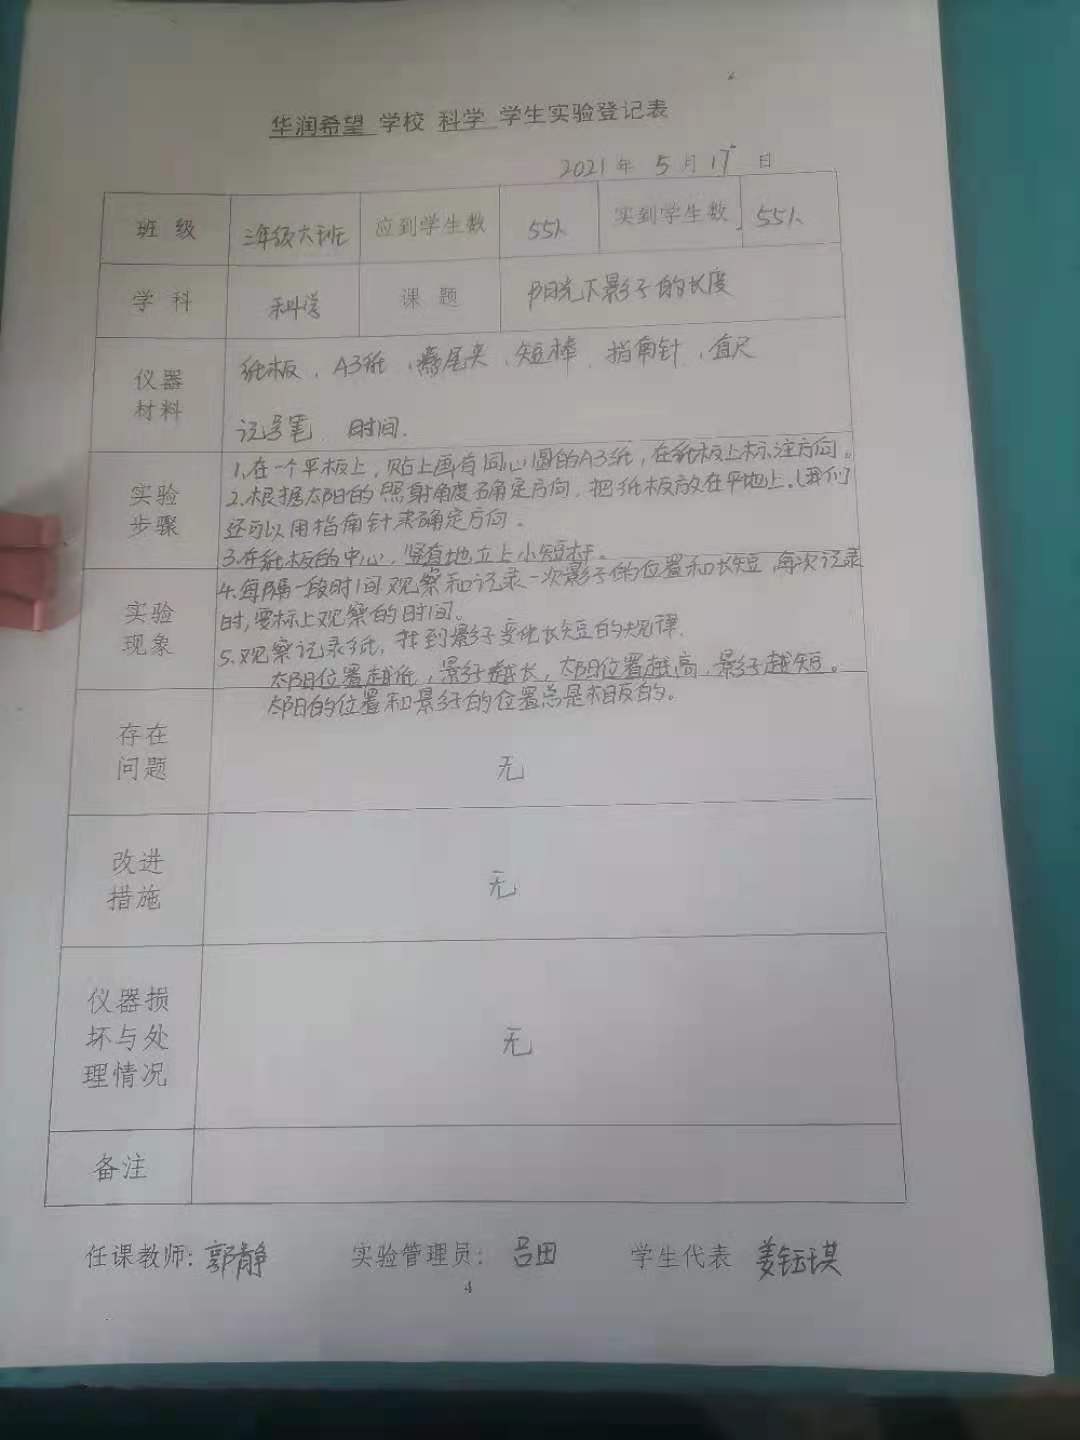 华润希望 学校 科学 学生实验登记表
2021年 5月17日
班级 三年级六班 应到学生数 55人 实到学生数 55人
学科 科学 课题 阳光下影子的长度
仪器
材料
纸板、A3纸、燕尾夹、短棒、指南针、直尺
记号笔 时间.
实验
步骤
1.在一个平板上,贴上画有同心圆的A3纸,在纸板上标注方向。
2.根据太阳的照射角度确定方向,把纸板放在平地上.(我们
还可以用指南针来确定方向.
3.在纸板的中心,竖直地立上小短杆。
实验
现象
4.每隔一段时间观察和记录一次影子的位置和长短,每次记录
时,要标上观察的时间。
5.观察记录纸,找到影子变化长短的规律.
太阳位置越低,影子越长,太阳位置越高,影子越短。
太阳的位置和影子的位置总是相反的。
存在
问题
无
改进
措施
无
仪器损
坏与处
理情况
无
备注
任课教师:郭静 实验管理员:吕田 学生代表 姜钰琪
4